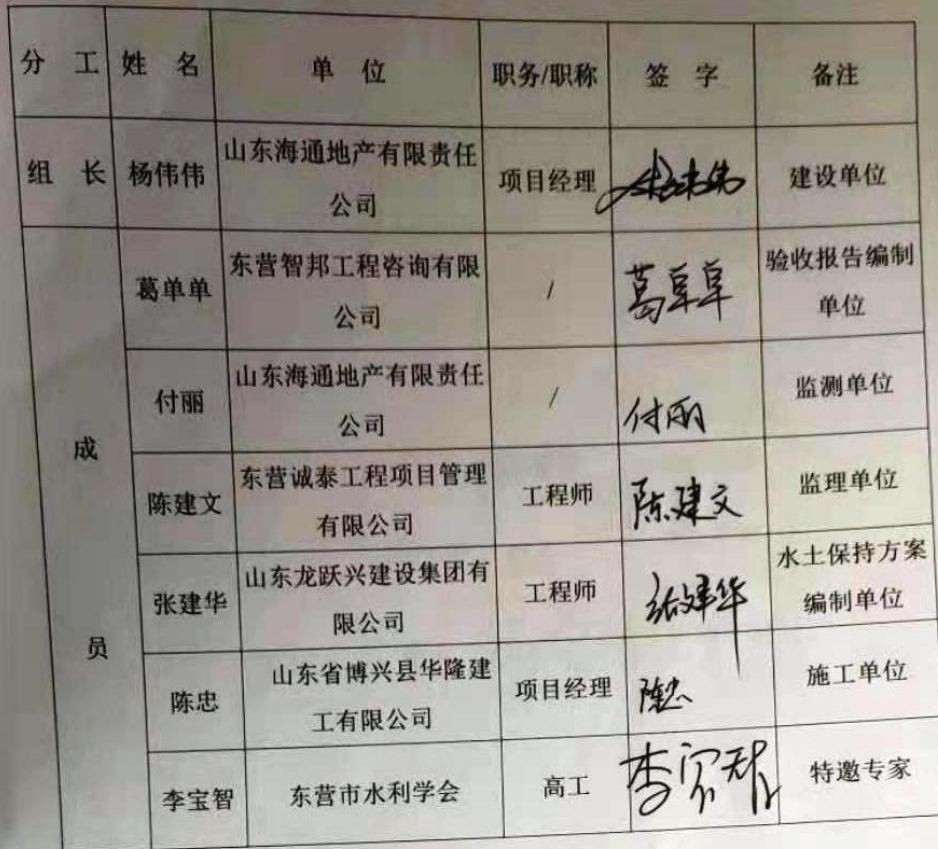 分 工 姓 名 单 位 职务/职称 签 字 备注
组 长 杨伟伟 山东海通地产有限责任公司 项目经理 杨伟伟 建设单位
成员
葛单单 东营智邦工程咨询有限公司 / 葛单单 验收报告编制单位
付丽 山东海通地产有限责任公司 / 付丽 监测单位
陈建文 东营诚泰工程项目管理有限公司 工程师 陈建文 监理单位
张建华 山东龙跃兴建设集团有限公司 工程师 张建华 水土保持方案编制单位
陈忠 山东省博兴县华隆建工有限公司 项目经理 陈忠 施工单位
李宝智 东营市水利学会 高工 李宝智 特邀专家